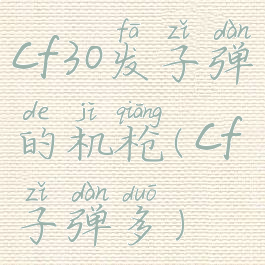 fā zǐ dàn
cf30发子弹
de jī qiāng
的机枪(cf
zǐ dàn duō
子弹多)